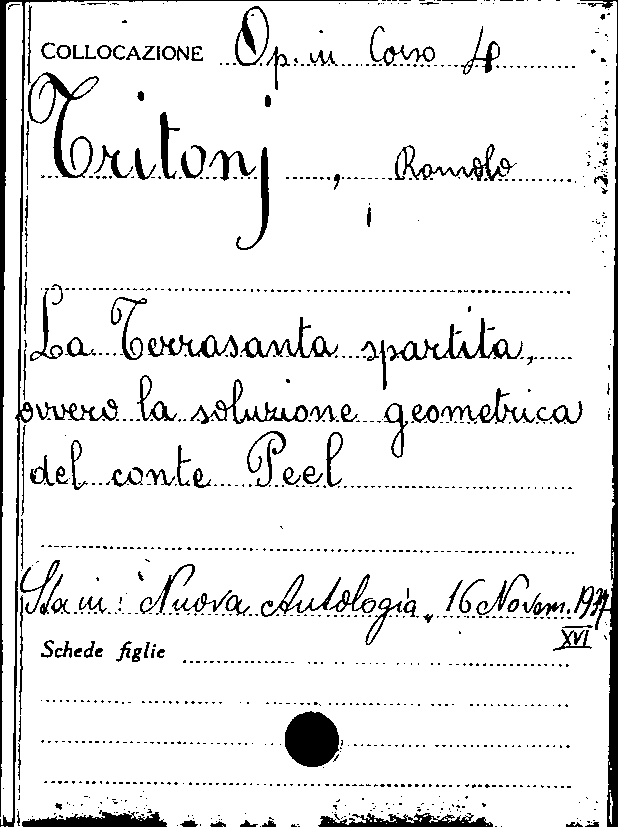 COLLOCAZIONE Op. in Corso
Tritonj, Romolo
La Terrasanta spartita,
ovvero la soluzione geometrica
del conte Peel
Sta in: "Nuova Antologia„ 16 Novem. 1937
XVI
Schede figlie